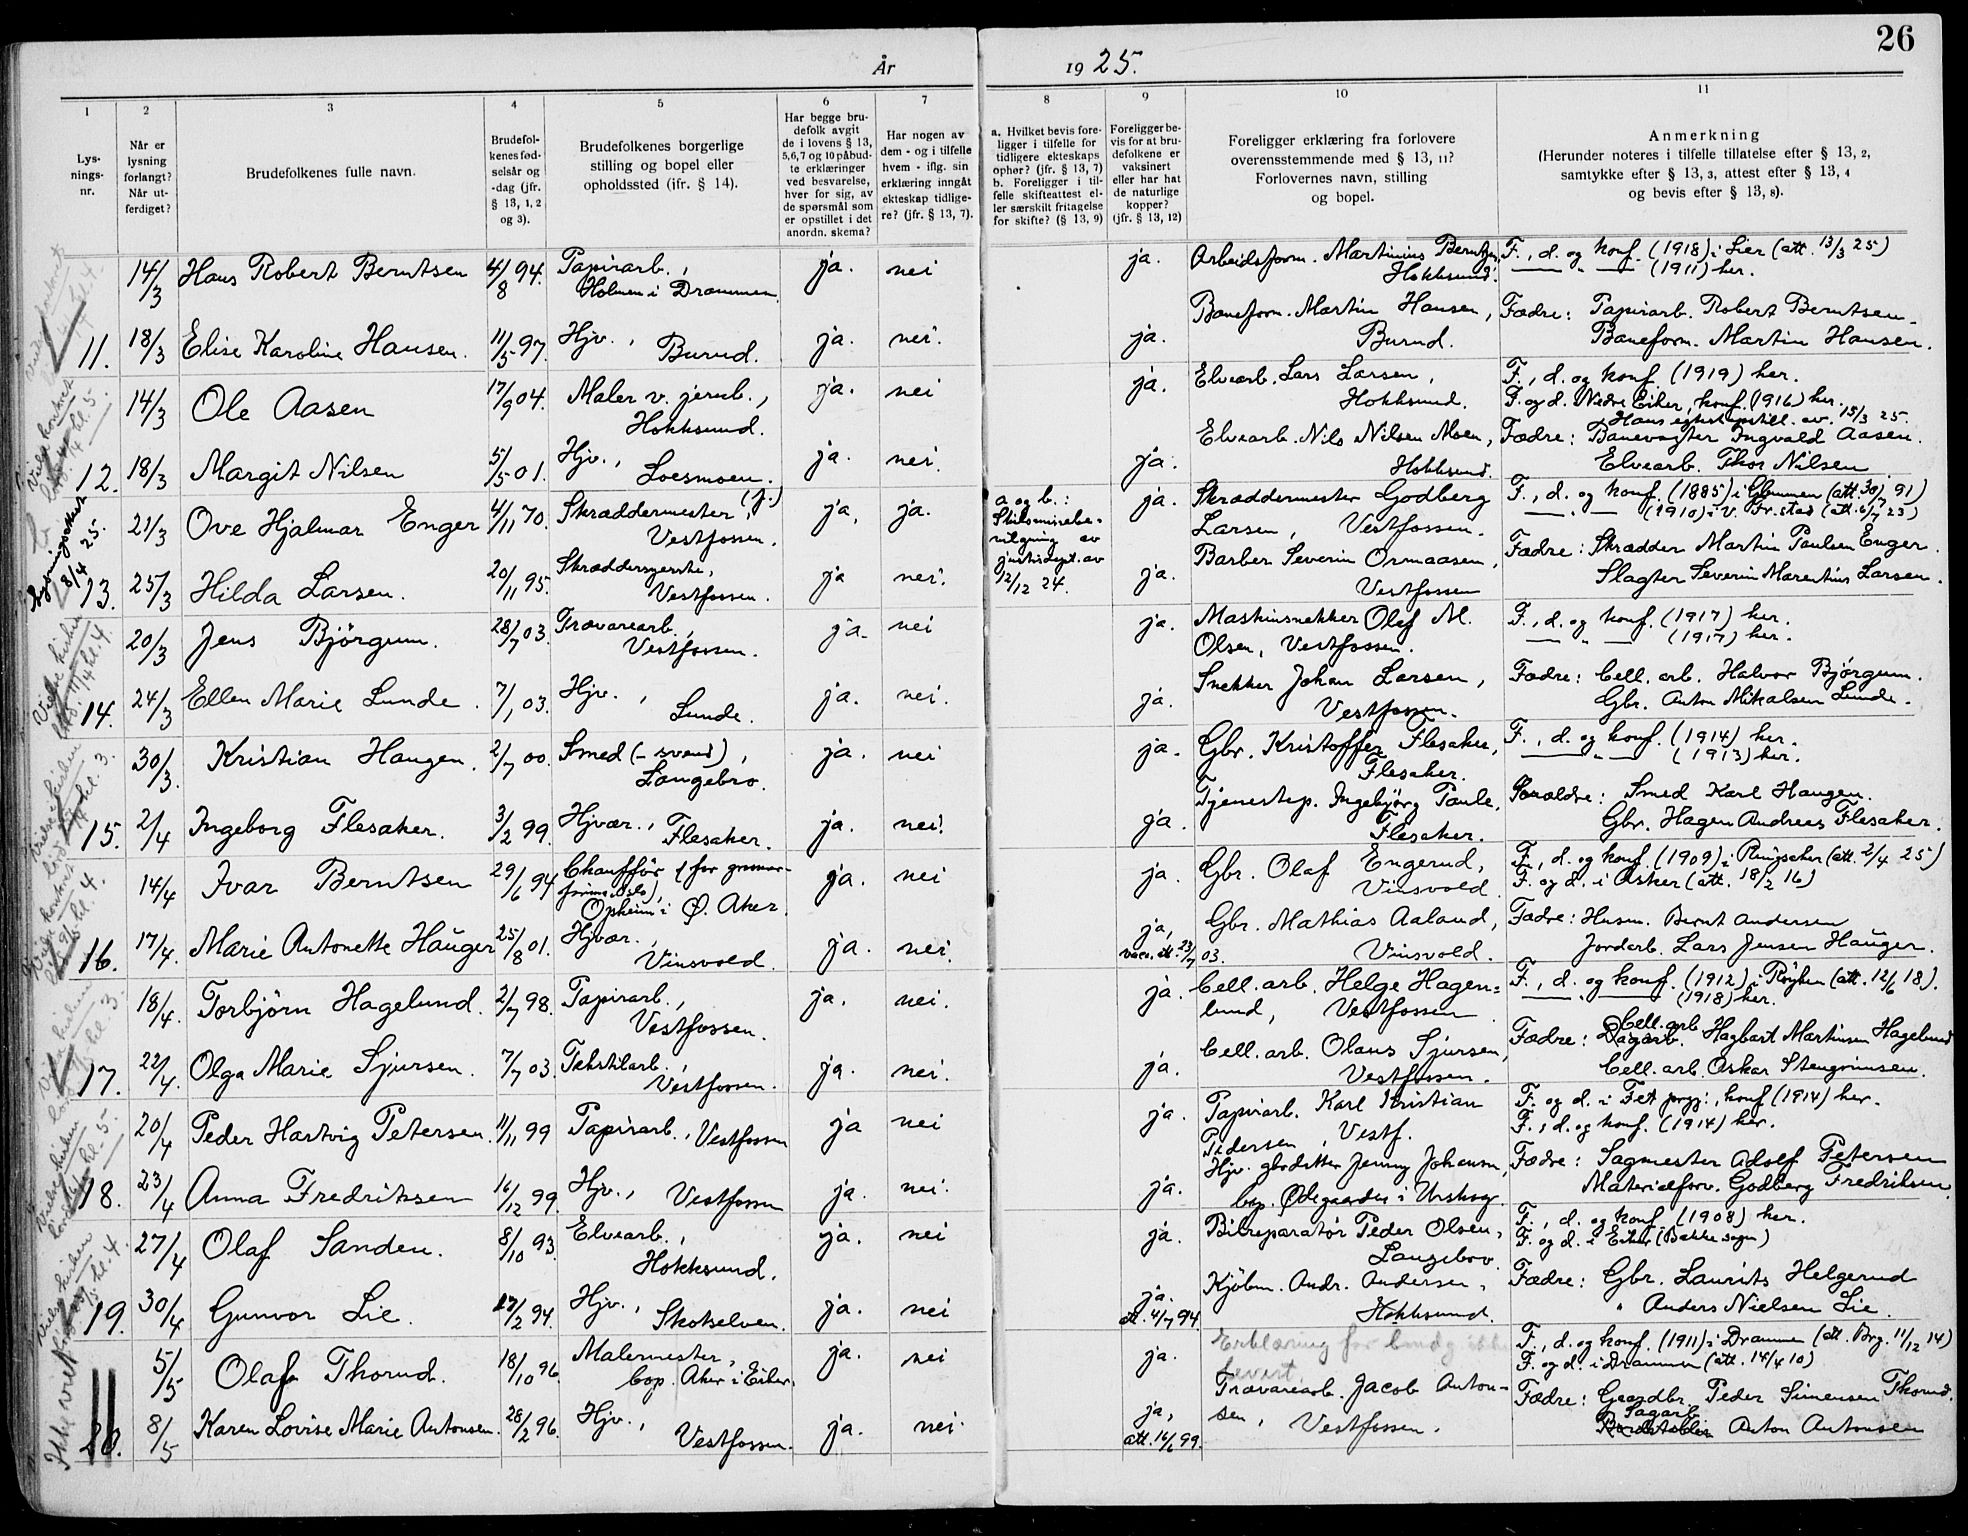 26
År 1925.
1 2 3 4 5 6 7 8 9 10 11
Lysnings-nr.
Når er lysning forlangt? Når utferdiget?
Brudefolkenes fulle navn.
Brudefolkenes fødselsår og -dag (jfr. § 13, 1, 2 og 3).
Brudefolkenes borgerlige stilling og bopel eller opholdssted (ifr. § 14).
Har begge brudefolk avgit de i lovens § 13, 5,6,7 og 10 påbudte erklæringer ved besvarelse, hver for sig, av de spørsmål som er opstillet i det anordn. skema?
Har nogen av dem - og i tilfelle hvem - iflg. sin erklæring inngåt ekteskap tidligere? (jfr. § 13, 7).
a. Hvilket bevis foreligger i tilfelle for tidligere ekteskaps ophør? (jfr. § 13, 7) b. Foreligger i tilfelle skifteattest eller særskilt fritagelse for skifte? (§ 13, 9)
Foreligger bevis for at brudefolkene er vaksinert eller har hat de naturlige kopper? (jfr. § 13, 12)
Foreligger erklæring fra forlovere overensstemmende med § 13, 11? Forlovernes navn, stilling og bopel.
Anmerkning (Herunder noteres i tilfelle tillatelse efter § 13, 2, samtykke efter § 13, 3, attest efter § 13, 4 og bevis efter § 13, 8).
14/3 Hans Robert Berntsen 4/8 94. Papirarb., Holmen i Drammen ja. nei ja. Arbeidsform. Martinius Berntsen, Hokksund. F., d. og konf. (1918) i Lier (att. 13/3 25)
— " — (1911) her.
11. 18/3 Elise Karoline Hansen. 11/5 97. Hjv., Burud. ja. nei. ja. Baneform. Martin Hansen, Burud. Fædre: Papirarb. Robert Berntsen.
Baneform. Martin Hansen.
14/3 Ole Aasen 17/9 04. Maler v. jernb., Hokksund. ja. nei ja. Elvearb. Lars Larsen, Hokksund. F., d. og konf. (1919) her.
F. og d. Nedre Eiker, konf. (1916) her.
15/3 25.
12. 18/3 Margit Nilsen 5/5 01. Hjv., Loesmoen. ja. nei. ja. Elvearb. Nils Nilsen Moen, Hokksund. Fædre: Banevogter Ingvald Aasen.
Elvearb. Thor Nilsen
21/3 Ove Hjalmar Enger 4/11 70. Skræddermester, (f.) Vestfossen. ja, ja. a og b.: Skilsmissebevilgning av justisdept. av 12/12 24. ja. Skræddermester Godberg Larsen, Vestfossen. F., d. og konf. (1885) i Glemmen (att. 30/7 91)
— " — (1910) i V. Fr.stad (att. 6/7 23)
13. 25/3 Hilda Larsen. 20/11 95. Skræddersyerske, Vestfossen. ja nei. ja. Barber Severin Ormaasen, Vestfossen Fædre: Skrædder Martin Paulsen Enger.
Slagter Severin Marentius Larsen.
20/3 Jens Bjørgum. 28/7 03. Trævarearb., Vestfossen. ja. nei ja. Maskinsnekker Olaf M. Olsen, Vestfossen. F., d. og konf. (1917) her.
— " — (1917) her.
14. 24/3 Ellen Marie Lunde. 7/1 03. Hjv., Lunde. ja. nei. ja. Snekker Johan Larsen, Vestfossen. Fædre: Cell. arb. Halvor Bjørgum.
Gbr. Anton Mikalsen Lunde.
30/3. Kristian Haugen. 2/7 00. Smed (-svend), Langebro. ja. nei ja. Gbr. Kristoffer Flesaker, Flesaker. F., d. og konf. (1914) her.
— " — (1913) her.
15. 2/4 Ingeborg Flesaker. 3/2 99. Hjvær., Flesaker. ja. nei. ja. Tjenestep. Ingebjørg Paule, Flesaker. Forældre: Smed Karl Haugen.
Gbr. Hagen Andreas Flesaker.
14/4 Ivar Berntsen 29/6 94 Chauffør (for grosserfirma. Oslo), Opheim i Ø. Aker. ja. nei ja. Gbr. Olaf Engerud, Vinsvold F., d. og konf. (1909) i Ringsaker (att. 2/4 25)
F. og d. i Asker (att. 18/2 16)
16. 17/4. Marie Antonette Hauger 25/8 01. Hjvær., Vinsvold. ja. nei. ja, vacc. att. 23/7 03. Gbr. Mathias Aaland, Vinsvold. Fædre: Husm. Bernt Andersen
Jordarb. Lars Jensen Hauger.
18/4. Torbjørn Hagelund. 2/7 98. Papirarb., Vestfossen. ja. nei. ja. Cell. arb. Helge Hagenlund, Vestfossen F., d. og konf. (1912) i Røyken (att. 12/6 18).
— " — (1918) her.
17. 22/4. Olga Marie Sjursen. 7/7 03. Tekstilarb., Vestfossen. ja. nei. ja. Cell. arb. Olaus Sjursen, Vestfossen. Fædre: Cell. arb. Hagbart Martinsen Hagelund
Cell. arb. Oskar Stengrimsen.
20/4 Peder Hartvig Petersen 11/11 99 Papirarb., Vestfossen ja nei ja. Papirarb. Karl Kristian Pedersen, Vestf. F. og d. i Fet prgj., konf (1914) her.
F., d. og konf. (1914) her.
18. 23/4 Anna Fredriksen 16/12 99. Hjv., Vestfossen ja. nei. ja. Hjv. gbrdatter Jenny Johansen, bop. Ødegaarden i Urskog. Fædre: Sagmester Adolf Petersen
Materialforv. Godberg Fredriksen.
27/4 Olaf Sanden. 8/10 93. Elvearb., Hokksund. ja. nei ja. Bilreparatør Peder Olsen, Langebro. F., d. og konf. (1908) her.
F. og d. i Eiker (Bakke sogn)
19. 30/4 Gunvor Lie. 17/2 94. Hjv., Skotselven. ja. nei ja. att. 4/7 94. Kjøbm. Andr. Andersen, Hokksund. Fædre: Gbr. Laurits Helgerud
" Anders Nielsen Lie.
5/5 Olaf Thorud. 18/10 96. Malermester, bop. Aker i Eiker. ja. nei ja. Erklæring for brudg. ikke levert. F., d. og konf. (1911) i Drammen (att. Brg. 11/12 14)
F. og d. i Drammen (att. 14/4 10)
Ikke viet
20. 8/5 Karen Lovise Marie Antonsen. 28/2 96. Hjv., Vestfossen. ja. nei. ja, att. 16/6 99. Trævarearb. Jacob Antonsen, Vestfossen. Fædre: Gaardbr. Peder Simensen Thorud.
Sagarb. Anton Antonsen